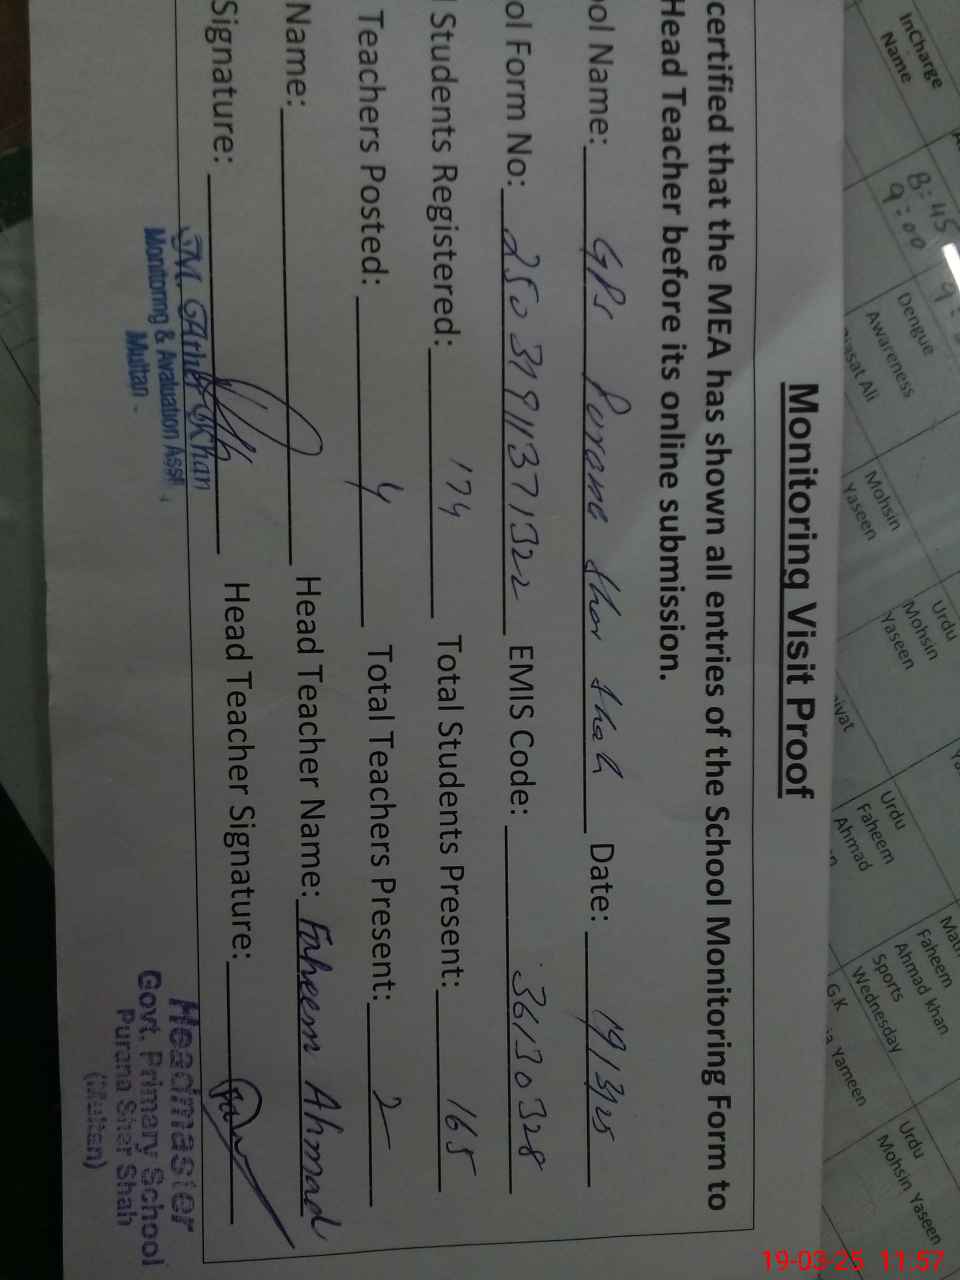 Monitoring Visit Proof
certified that the MEA has shown all entries of the School Monitoring Form to
Head Teacher before its online submission.
ool Name: GPS Purana Sher Shah Date: 19/3/25
ol Form No: EMIS Code: 36130328
l Students Registered: 174 Total Students Present: 165
Teachers Posted: 4 Total Teachers Present: 2
Name: Head Teacher Name: Faheem Ahmad
Signature: Head Teacher Signature:
Khan
Monitoring & Avaluation Asst.
Multan -
Headmaster
Govt. Primary School
Purana Sher Shah
(Multan)
InCharge
Name
8:45
9:00
Dengue
Awareness
asat Ali
Mohsin
Yaseen
Urdu
Mohsin
Yaseen
Urdu
Faheem
Ahmad
Faheem
Ahmad Khan
Sports
Wednesday
G.K
Yameen
Urdu
Mohsin Yaseen
19-03-25 11:57